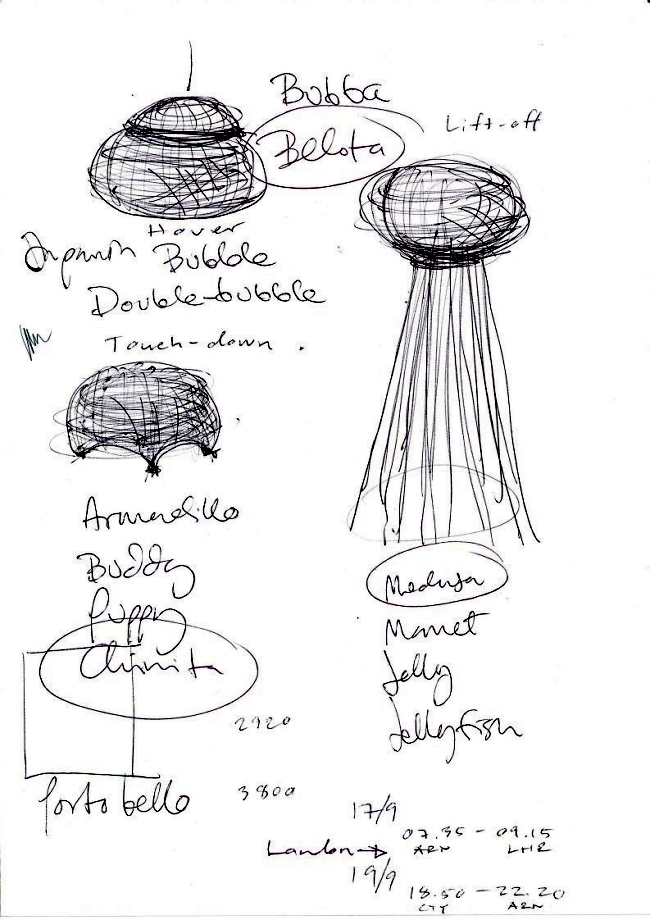 Bubba
Belota
Lift-off
Hover
Bubble
Double-bubble
Touch-down
Armadillo
Buddy
Puppy
Chinita
Medusa
Jelly
Jellyfish
2920
Portobello
3800
17/9
07.35 - 09.15
ARN LHR
London
19/9
18.50 - 22.20
CTY ARN